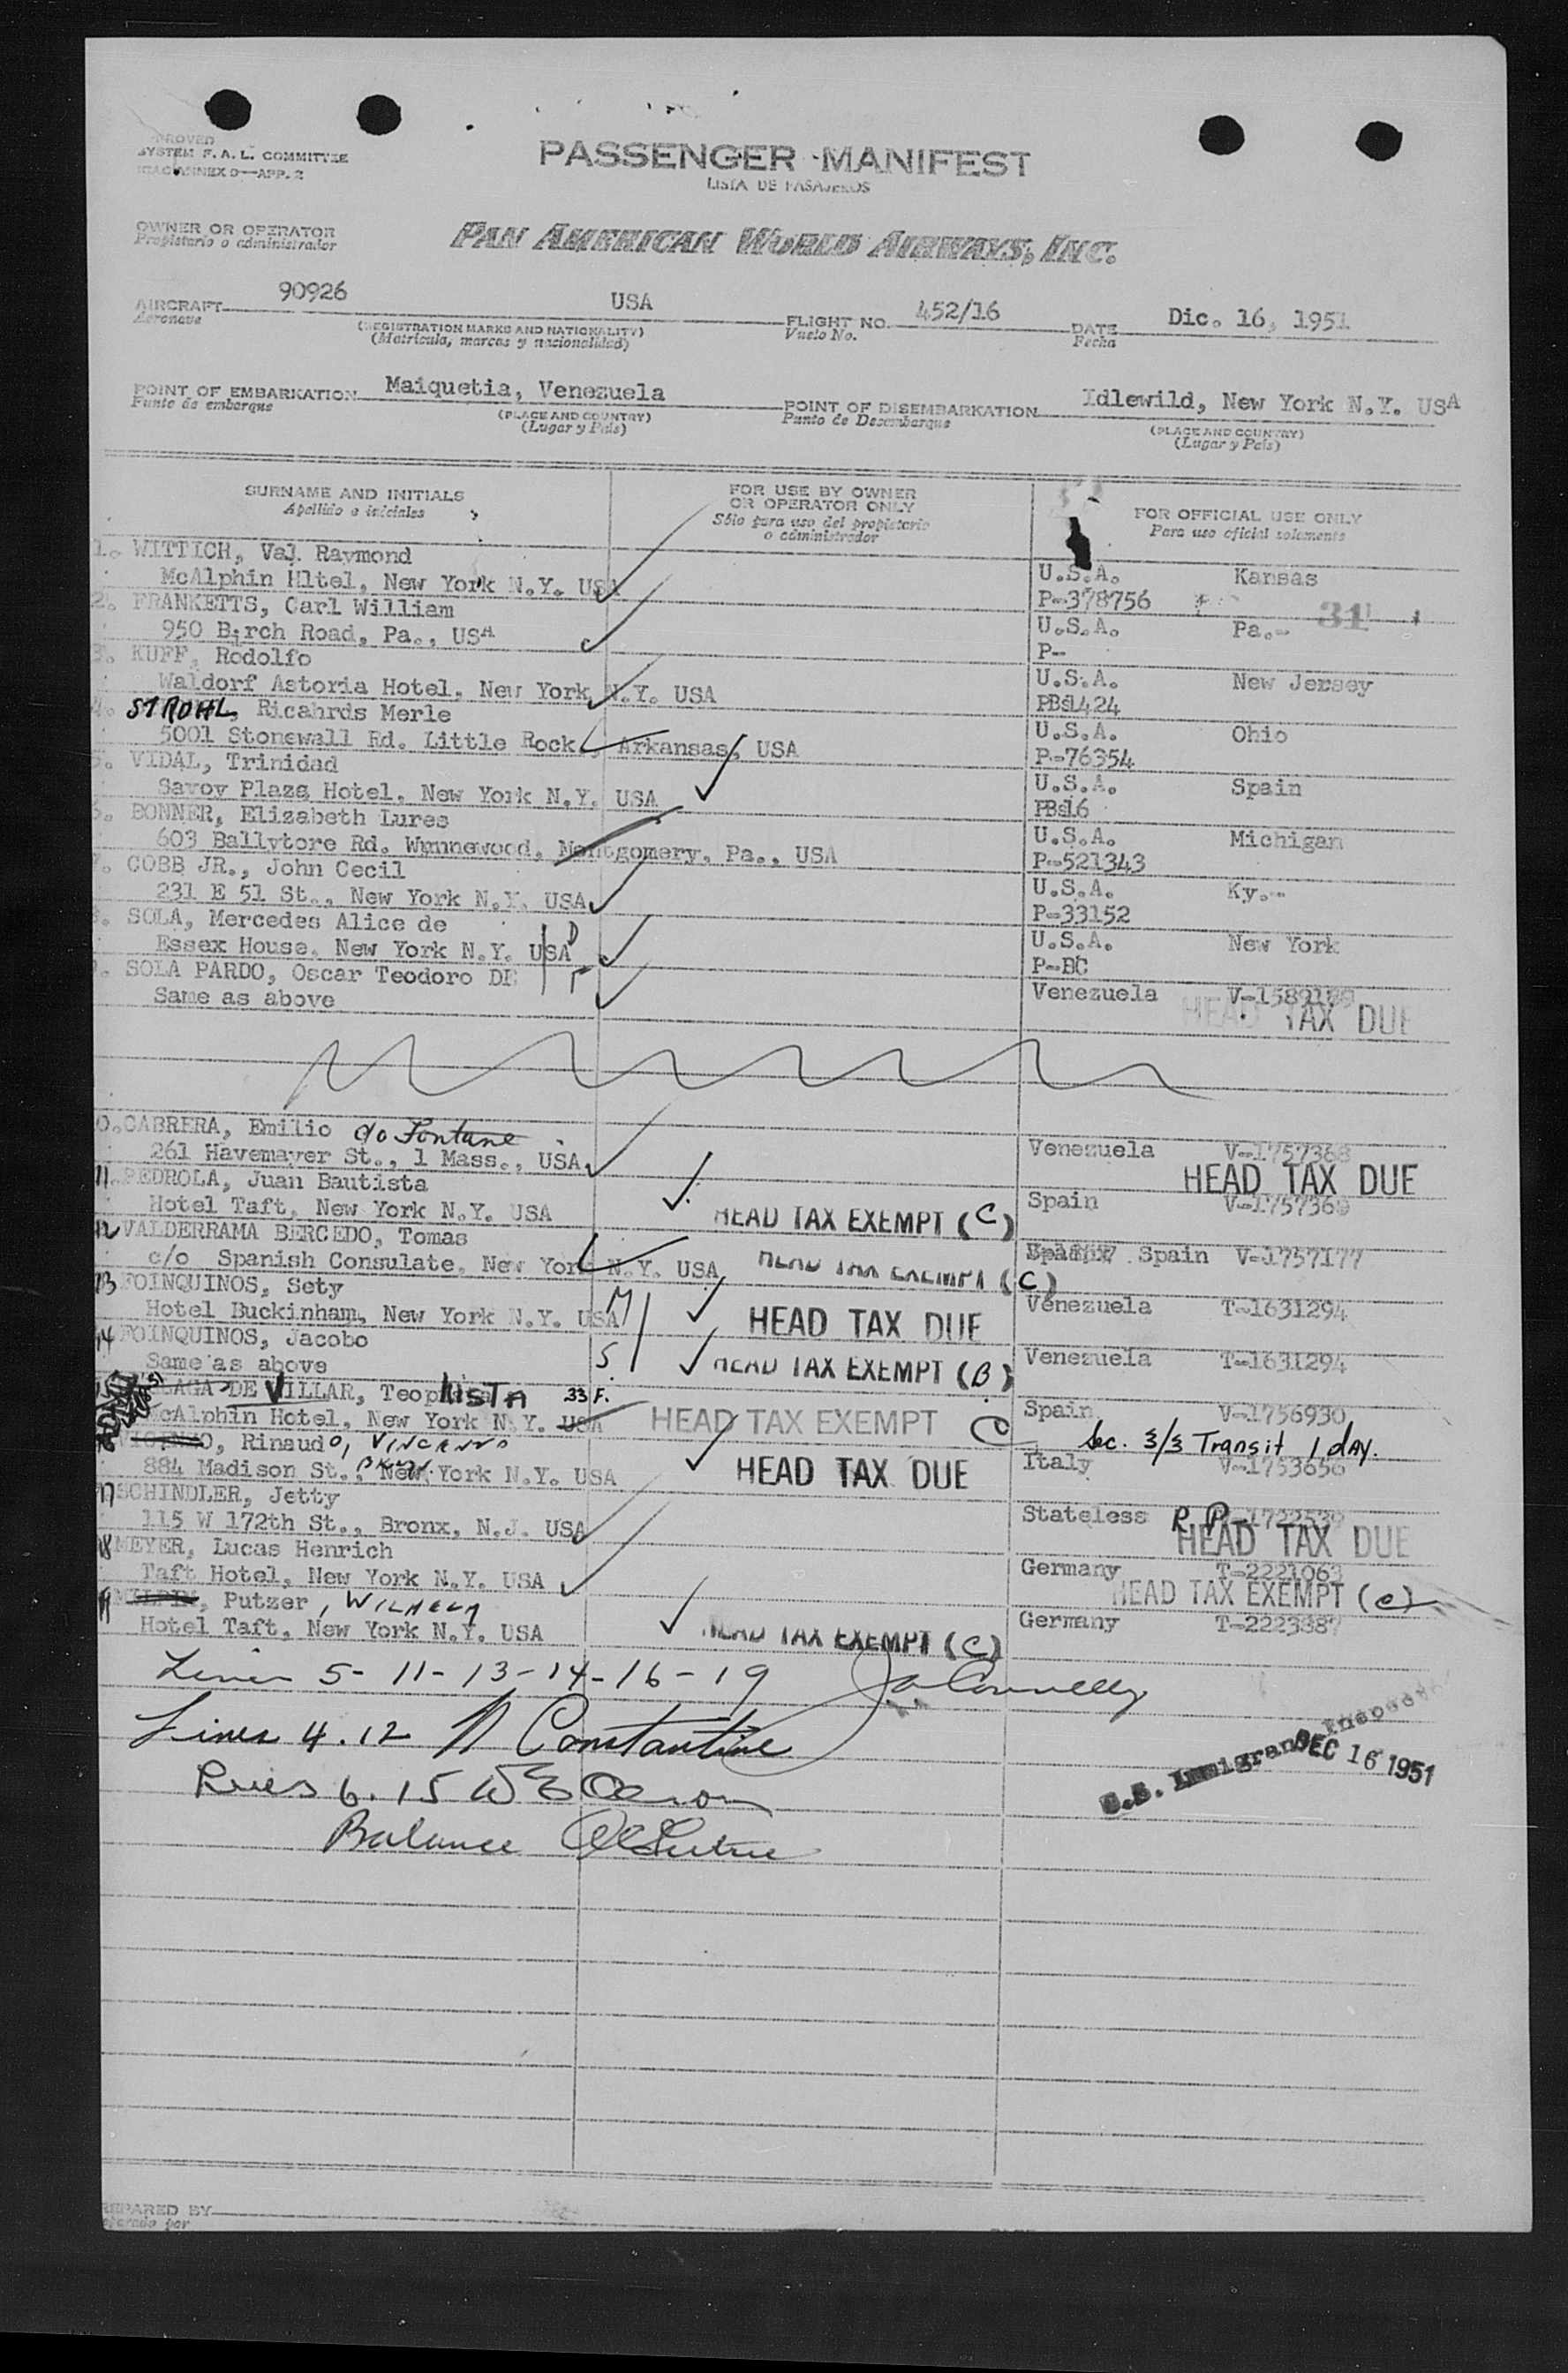 SYSTEM F. A. L. COMMITTEE
PASSENGER MANIFEST
LISTA DE PASAJEROS
OWNER OR OPERATOR
Propietario o administrador
PAN AMERICAN WORLD AIRWAYS, INC.
AIRCRAFT 90926 USA FLIGHT NO. 452/16 DATE Dic. 16, 1951
Aeronave (REGISTRATION MARKS AND NATIONALITY) Vuelo No. Fecha
(Matricula, marcas y nacionalidad)
POINT OF EMBARKATION Maiquetia, Venezuela POINT OF DISEMBARKATION Idlewild, New York N.Y. USA
Punto de embarque (PLACE AND COUNTRY) Punto de Desembarque (PLACE AND COUNTRY)
(Lugar y País) (Lugar y País)
SURNAME AND INITIALS FOR USE BY OWNER OR OPERATOR ONLY FOR OFFICIAL USE ONLY
Apellido e iniciales Sólo para uso del propietario o administrador Para uso oficial solamente
1. WITTICH, Val Raymond
McAlphin Hltel, New York N.Y. USA U.S.A. Kansas
2. FRANKETTS, Carl William P-378756 31
950 Birch Road, Pa., USA U.S.A. Pa.-
3. KUFF, Rodolfo P-
Waldorf Astoria Hotel, New York N.Y. USA U.S.A. New Jersey
4. STROHL, Ricahrds Merle 1424
5001 Stonewall Rd. Little Rock, Arkansas, USA U.S.A. Ohio
5. VIDAL, Trinidad P-76354
Savoy Plaza Hotel, New York N.Y. USA U.S.A. Spain
6. BONNER, Elizabeth Lures 16
603 Ballytore Rd. Wynnewood, Montgomery, Pa., USA U.S.A. Michigan
7. COBB JR., John Cecil P-521343
231 E 51 St., New York N.Y. USA U.S.A. Ky.-
8. SOLA, Mercedes Alice de P-33152
Essex House, New York N.Y. USA D U.S.A. New York
9. SOLA PARDO, Oscar Teodoro DE P-BC
Same as above Venezuela V-1589189
HEAD TAX DUE
10. CABRERA, Emilio c/o Fontane
261 Havemayer St., 1 Mass., USA Venezuela V-1757368
11. PEDROLA, Juan Bautista HEAD TAX DUE
Hotel Taft, New York N.Y. USA HEAD TAX EXEMPT (C) Spain V-1757369
12 VALDERRAMA BERCEDO, Tomas
c/o Spanish Consulate, New York N.Y. USA HEAD TAX EXEMPT (C) Spain V-1757177
13 FOINQUINOS, Sety
Hotel Buckinham, New York N.Y. USA M HEAD TAX DUE Venezuela T-1631294
14 FOINQUINOS, Jacobo
Same as above S HEAD TAX EXEMPT (B) Venezuela T-1631294
DE VILLAR, LISTA 33 F.
McAlphin Hotel, New York N.Y. USA HEAD TAX EXEMPT C Spain V-1756930
Rinaudo, VINCENZO Sec. 3/3 Transit 1 DAY.
884 Madison St., BKLYN. New York N.Y. USA HEAD TAX DUE Italy V-1753656
17 SCHINDLER, Jetty
115 W 172th St., Bronx, N.J. USA Stateless R P
18 MEYER, Lucas Henrich HEAD TAX DUE
Taft Hotel, New York N.Y. USA Germany T-2221063
HEAD TAX EXEMPT (C)
19 Putzer, WILHELM
Hotel Taft, New York N.Y. USA HEAD TAX EXEMPT (C) Germany T-2223387
Lines 5-11-13-14-16-19 Connelly
Lines 4.12 Constantine
Lines 6.15
Balance
U.S. Immigrant Inspector
DEC 16 1951
PREPARED BY
Preparado por